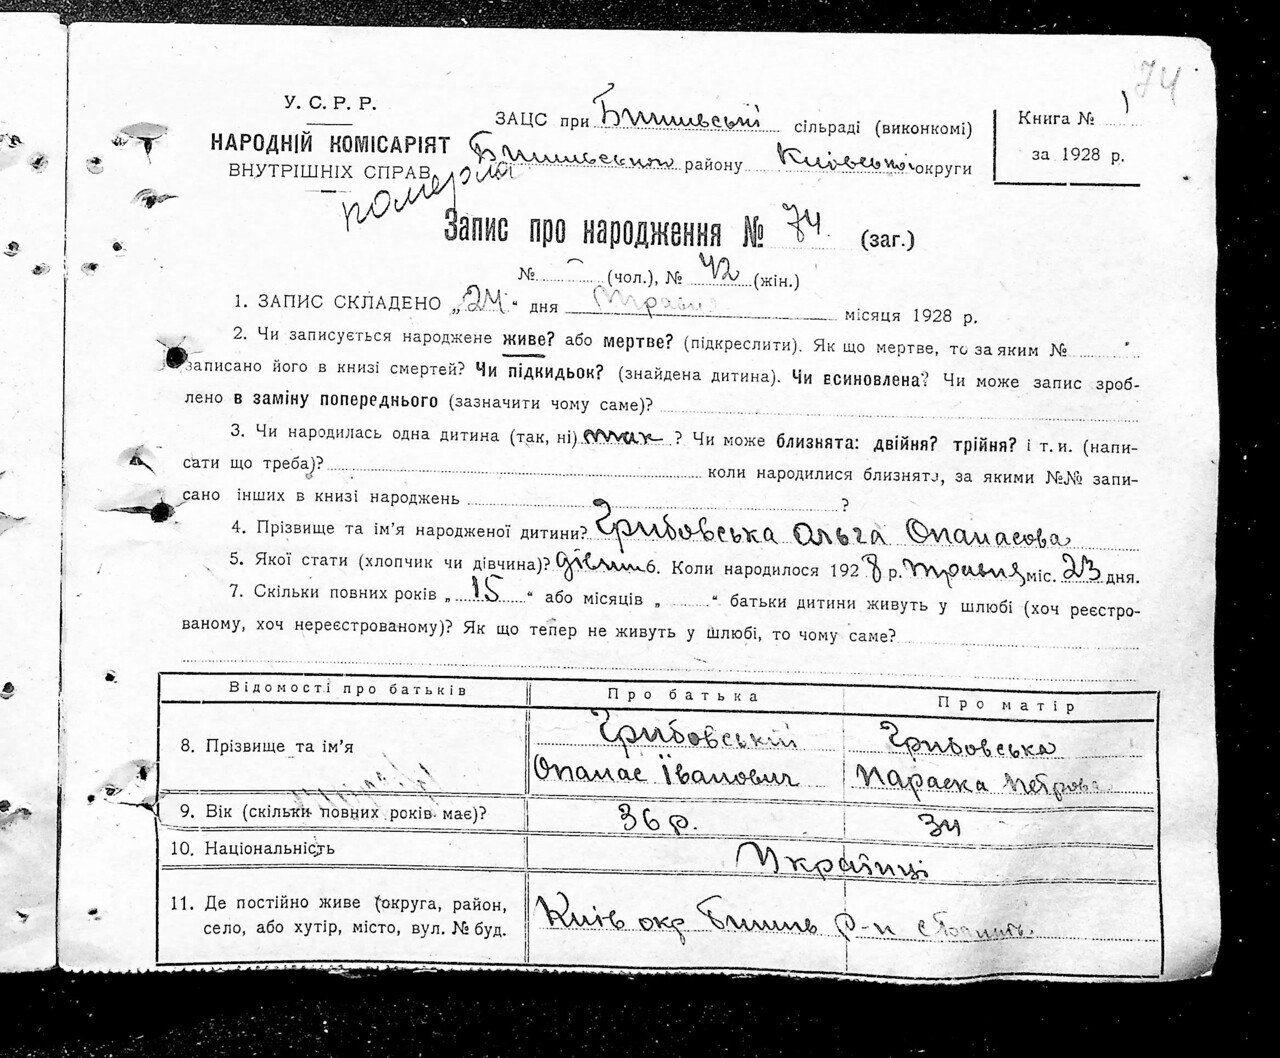 74
У. С. Р. Р.
НАРОДНІЙ КОМІСАРІЯТ
ВНУТРІШНІХ СПРАВ
померла
ЗАЦС при Бишівській сільраді (виконкомі)
Бишівського району Київської округи
Книга № 1
за 1928 р.
Запис про народження № 74 (заг.)
№ - (чол.), № 42 (жін.)
1. ЗАПИС СКЛАДЕНО „24“ дня травня місяця 1928 р.
2. Чи записується народжене живе? або мертве? (підкреслити). Як що мертве, то за яким №
записано його в книзі смертей? Чи підкидьок? (знайдена дитина). Чи всиновлена? Чи може запис зроб-
лено в заміну попереднього (зазначити чому саме)?
3. Чи народилась одна дитина (так, ні) так ? Чи може близнята: двійня? трійня? і т. и. (напи-
сати що треба)? коли народилися близнята, за якими №№ запи-
сано інших в книзі народжень ?
4. Прізвище та ім'я народженої дитини? Грибовська Ольга Опанасова
5. Якої стати (хлопчик чи дівчина)? дівчин 6. Коли народилося 1928 р. травня міс. 23 дня.
7. Скільки повних років „ 15 “ або місяців „ “ батьки дитини живуть у шлюбі (хоч реєстро-
ваному, хоч нереєстрованому)? Як що тепер не живуть у шлюбі, то чому саме?
Відомості про батьків Про батька Про матір
8. Прізвище та ім'я Грибовський Грибовська
Опанас Іванович Параска Петрова
9. Вік (скільки повних років має)? 36 р. 34
10. Національність Українці
11. Де постійно живе (округа, район,
село, або хутір, місто, вул. № буд.
Київ окр Бишів р-н